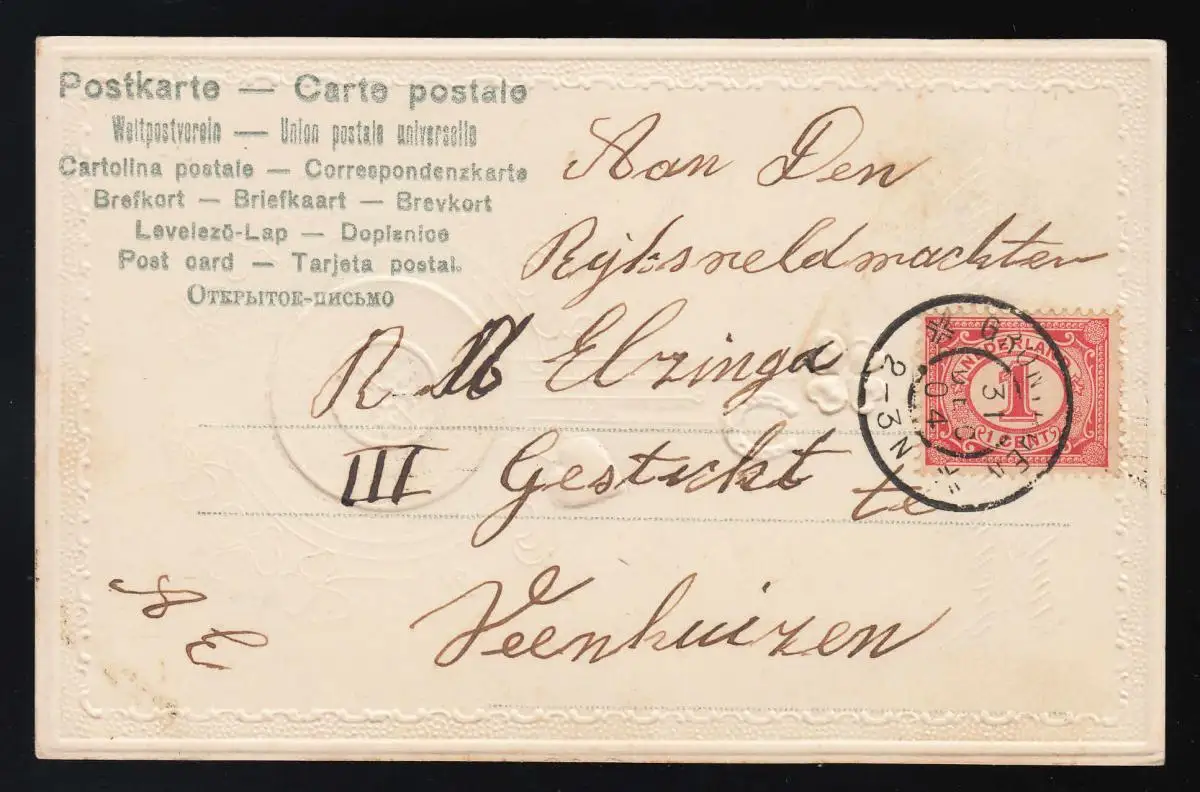 Postkarte — Carte postale
Weltpostverein — Union postale universelle
Cartolina postale — Correspondenzkarte
Brefkort — Briefkaart — Brevkort
Levelezö-Lap — Dopisnice
Post card — Tarjeta postal.
Открытое-письмо
Aan Den
Rijksveldwachter
R Elzinga
III Gesticht te
Veenhuizen
NEDERLAND
1
1 CENT
31 DEC 04
2-3N